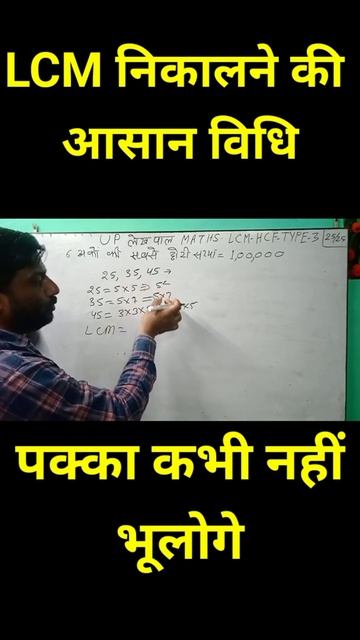 LCM निकालने की
आसान विधि
UP लेखपाल MATHS LCM-HCF-TYPE-3
6 अंकों की सबसे छोटी संख्या = 1,00,000
25, 35, 45 →
25 = 5×5 = 5²
35 = 5×7 = 5×7
45 = 3×3× ×5
LCM =
पक्का कभी नहीं
भूलोगे